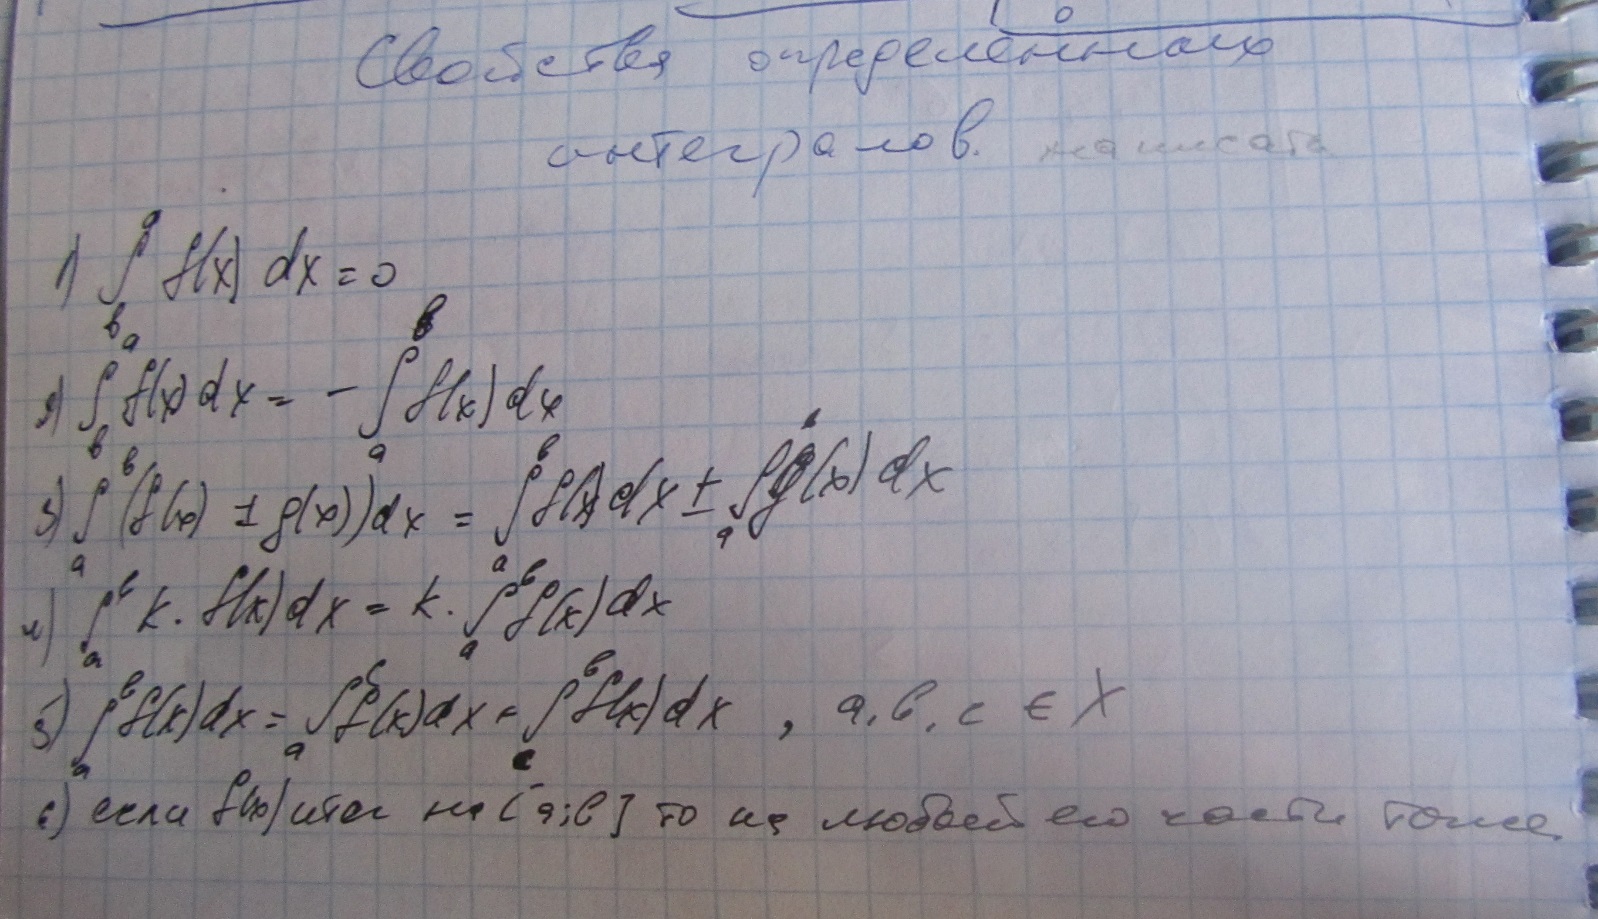 Свойства определенного
интегралов. написать
1) ∫_в^a f(x) dx = 0
2) ∫_в^a f(x) dx = - ∫_a^в f(x) dx
3) ∫_a^в (f(x) ± g(x)) dx = ∫_a^в f(x) dx ± ∫_a^в g(x) dx
4) ∫_a^в k · f(x) dx = k · ∫_a^в f(x) dx
5) ∫_a^в f(x) dx = ∫_a^c f(x) dx + ∫_c^в f(x) dx , a, в, c ∈ X
6) если f(x) итег на [a;в] то на любой его части тоже